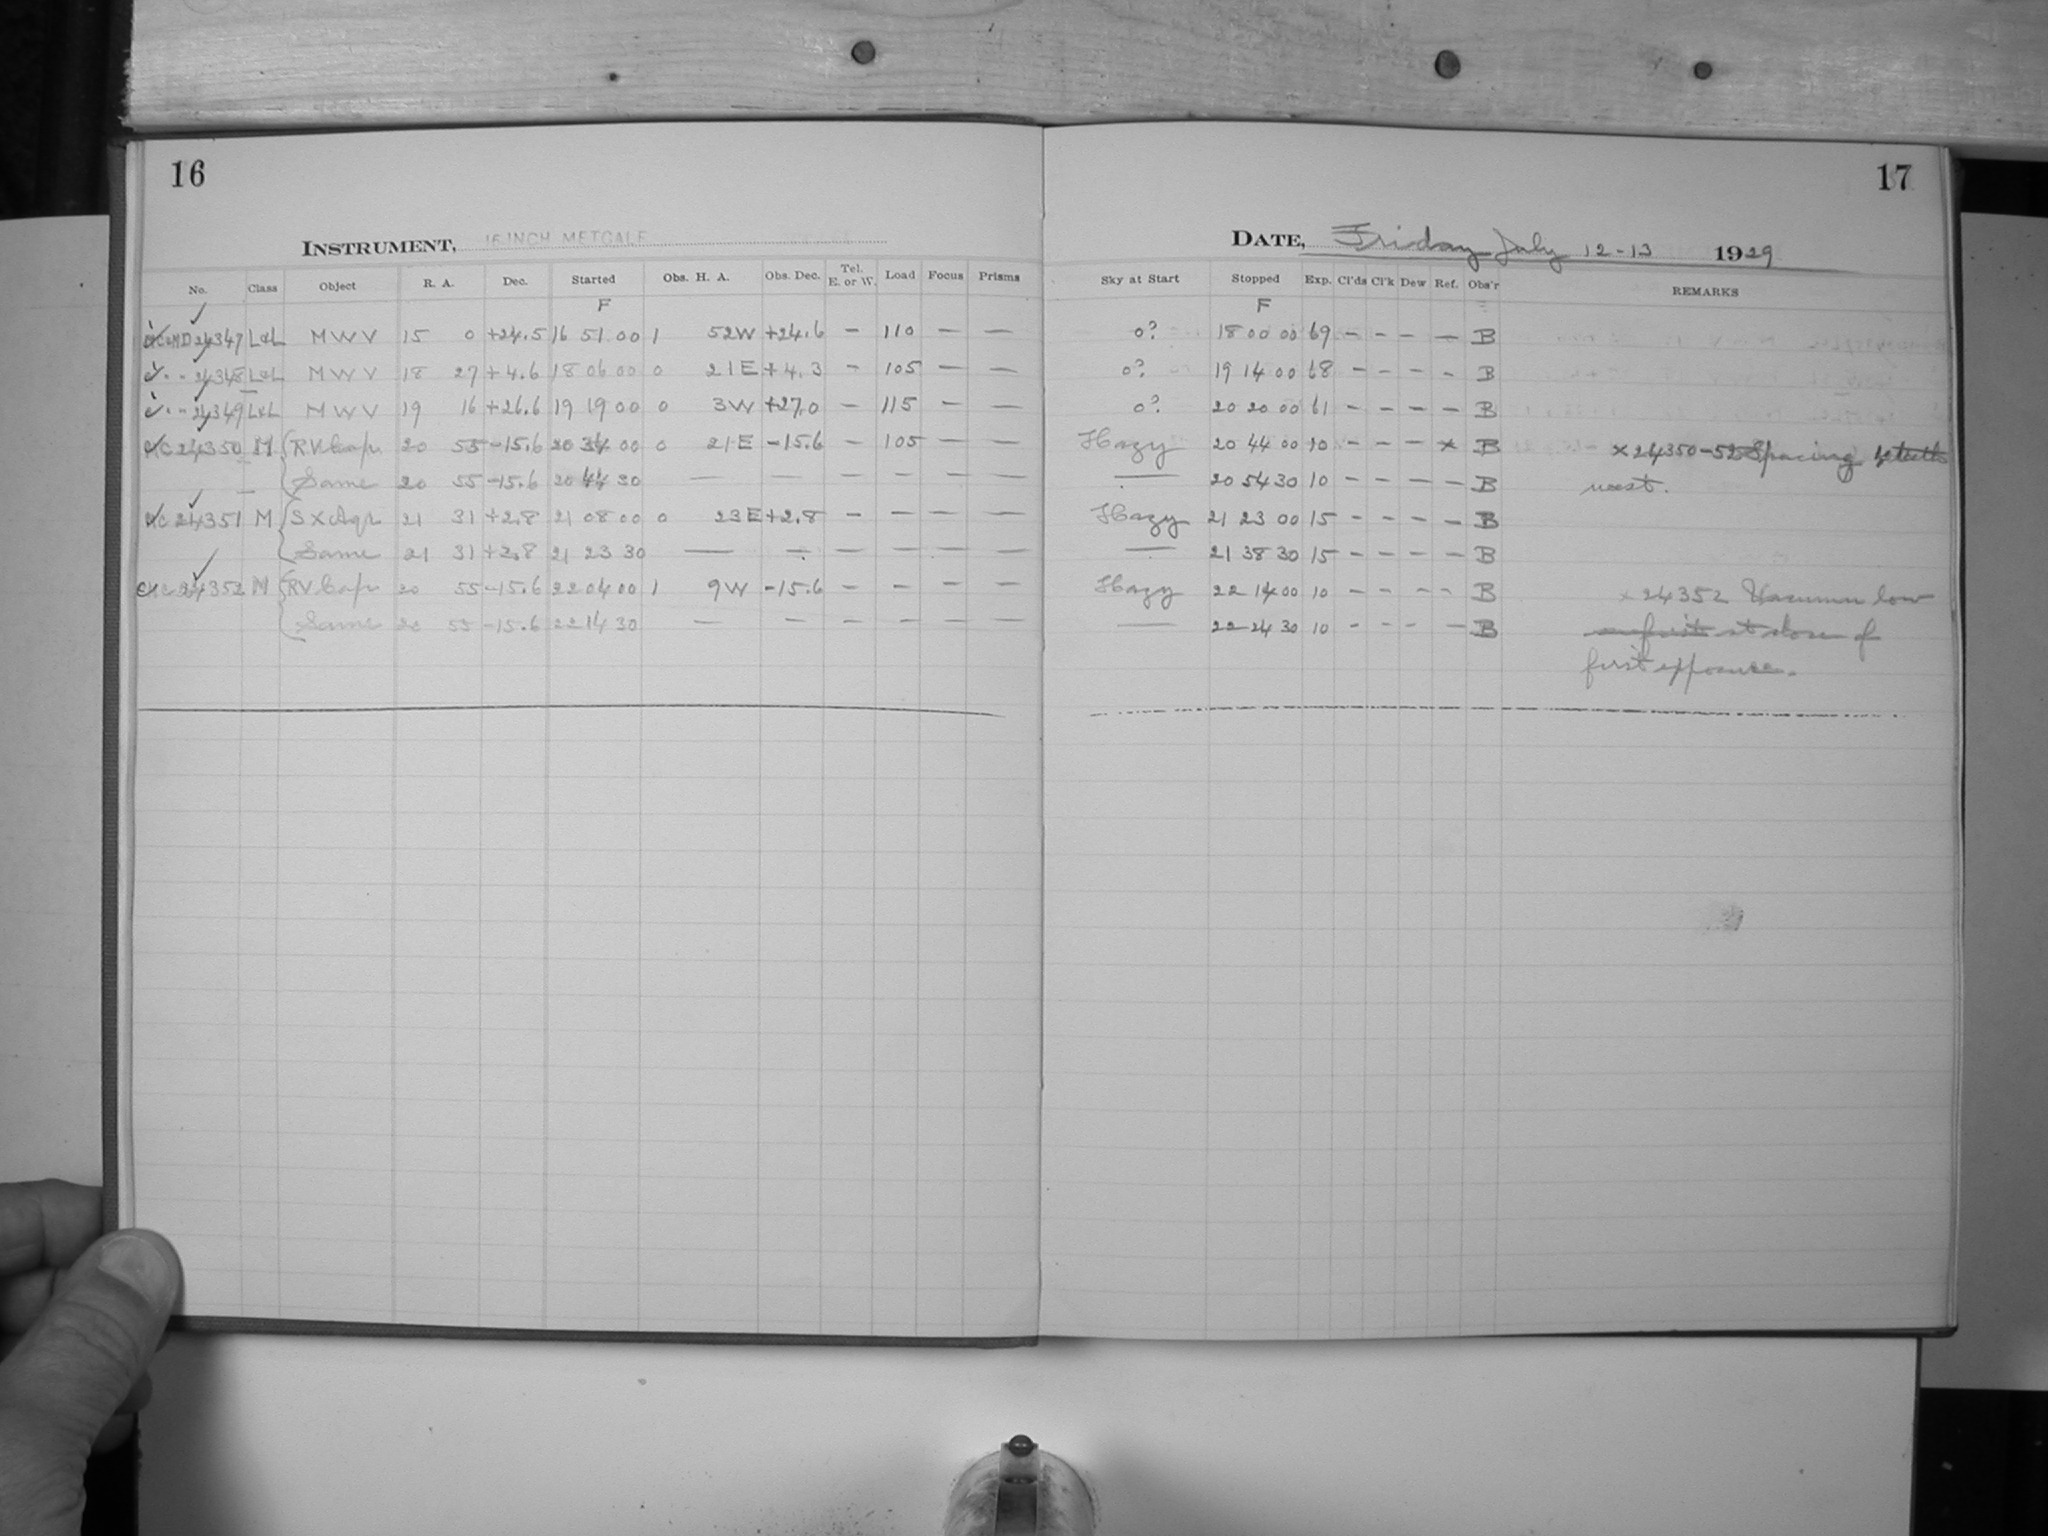 16
INSTRUMENT, 16 INCH METCALF
No. Class Object R. A. Dec. Started Obs. H. A. Obs. Dec. Tel. E. or W. Load Focus Prisms
F
24347 L&L M W V 15 0 +24.5 16 51 00 1 52W +24.6 — 110 — —
24348 L&L M W V 18 27 +4.6 18 06 00 0 21E +4.3 — 105 — —
24349 L&L M W V 19 16 +26.6 19 19 00 0 3W +27.0 — 115 — —
MC 24350 M RV Capr 20 55 -15.6 20 34 00 0 21E -15.6 — 105 — —
Same 20 55 -15.6 20 44 30 — — — — — —
MC 24351 M SX Aqr 21 31 +2.8 21 08 00 0 23E +2.8 — — — —
Same 21 31 +2.8 21 23 30 — — — — — —
MC 24352 M RV Capr 20 55 -15.6 22 04 00 1 9W -15.6 — — — —
Same 20 55 -15.6 22 14 30 — — — — — —
17
DATE, Friday July 12-13 1929
Sky at Start Stopped Exp. Cl'ds Cl'k Dew Ref. Obs'r REMARKS
F
0? 18 00 00 69 — — — — B
0? 19 14 00 68 — — — — B
0? 20 20 00 61 — — — — B
Hazy 20 44 00 10 — — — x B x 24350-52 Spacing
— 20 54 30 10 — — — — B west.
Hazy 21 23 00 15 — — — — B
— 21 38 30 15 — — — — B
Hazy 22 14 00 10 — — — — B x 24352 Vacuum low
— 22 24 30 10 — — — — B at close of
first exposure.